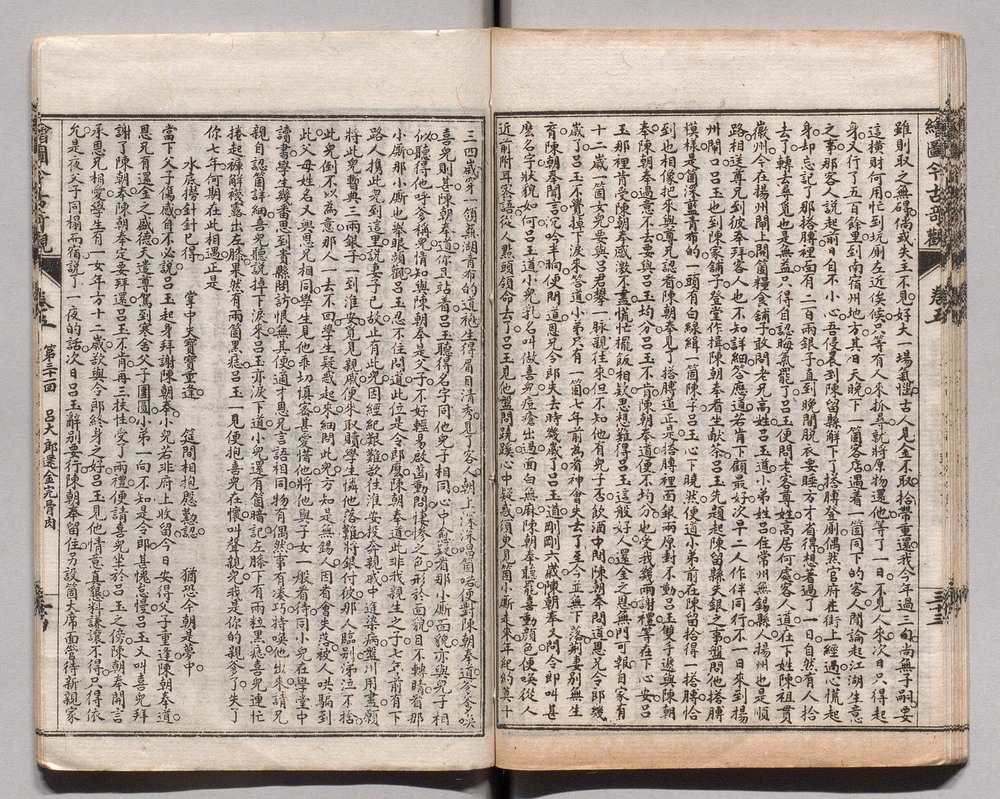 繪圖今古奇觀 卷五 三十三
雖則取之無碍倘或失主不見好大一場氣惱古人見金不取拾帶重還我今年過三旬尚無子嗣要
這橫財何用忙到坑厠左近俟候只等有人來抓尋就將原物還他等了一日不見人來次日只得起
身又行了五百餘里到南宿州地方其日天晚下一箇客店遇着一箇同下的客人閒論起江湖生意
之事那客人說起前日自不小心五日侵晨到陳留縣解下了搭膊登厠偶然官府在街上經過心慌起
身却忘記了那搭膊裡面有二百兩銀子直到晚間脫衣要睡方才省得想着過了一日自然有人拾
去了轉去尋覓也是無益只得自認晦氣罷了呂玉便問老客尊姓高居何處客人道在下姓陳祖貫
徽州今在揚州閘上開箇糧食舖子敢問老兄高姓呂玉道小弟姓呂住常州無錫縣人揚州也是順
路相送尊兄到彼奉拜客人也不知詳細答應道若肯下顧最好次早二人作伴同行不一日來到揚
州閘口呂玉也到陳家舖子登堂作揖陳朝奉看坐獻茶呂玉先題起陳留縣失銀之事盤問他搭膊
模樣是箇深藍青布的一頭有白線緝一箇陳字呂玉心下曉然便道小弟前在陳留拾得一搭膊恰
到也相像把來與尊兄認看陳朝奉見了搭膊道正是搭膊裡面銀兩原封不動呂玉雙手遞與陳朝
奉陳朝奉過意不去要與呂玉均分呂玉不肯陳朝奉道便不均分也受我幾兩謝禮等在下心安呂
玉那裡肯受陳朝奉感激不盡慌忙擺飯相欵思想難得呂玉這般好人還金之恩無門可報自家有
十二歲一箇女兒要與呂君攀一脉親往來但不知他有兒子否飲酒中間陳朝奉問道恩兄令郎幾
歲了呂玉不覺掉下淚來答道小弟只有一箇七年前為看神會失去了至今並無下落荊妻別無生
陳朝奉聞言沉吟半晌便問恩兄令郎失去時幾歲了呂玉道剛剛六歲陳朝奉又問令郎叫甚
麼名字狀貌如何呂玉道小兒乳名叫做喜兒痘瘡出過面白無麻陳朝奉聽罷喜動顏色便喚從人
近前附耳密語從人點頭領命去了呂玉見他盤問蹺蹊心中疑惑須臾見箇小廝走來年紀約莫十
三四歲穿一領蕪湖青布的道袍生得眉目清秀見了客人朝上深深唱箇喏便對陳朝奉道爹爹喚
喜兒則甚陳朝奉道你且站着呂玉聽得名字同他兒子相同心中愈疑看那小廝面貌亦與兒子相
似聽得他呼爹稱兒情知與陳朝奉是父子不好輕易啟齒動問悽慘之色形於面貌目不轉睛看那
小廝那小廝也舉眼頻觀呂玉忍不住問道此位是令郎麼陳朝奉道此非我親生之子七年前有下
路人携此兒到這里說妻子已故止有此兒因經紀艱難欲往淮安投奔親戚中途染病盤川用盡願
將此兒暫典三兩銀子一到淮安見親戚便來取贖學生憐他落難將銀付彼那人臨別涕泣不捨
此兒倒不以為意那人一去不回學生疑惑起來細問此兒方知是無錫人因看會失落被人哄騙到
此父母姓名又與恩兄相同學生見他乖切慎密甚愛惜他將他與子女一般看待同小兒在學堂中
讀書學生幾番思到貴縣問訪恨無其便適才恩兄言語相同物有偶然事有湊巧特喚他出來請兄
親自認箇詳細喜兒聽說掉下淚來呂玉亦淚下道小兒還有箇暗記左膝下有兩粒黑痣喜兒連忙
捲起褲解襪露出左膝果然有兩箇黑痣呂玉一見便抱喜兒在懷叫聲親兒我是你的親爹了失了
你七年何期在此相遇正是
水底撈針針已得 掌中失寶寶重逢 筵間相抱慇懃認 猶恐今朝是夢中
當下父子傷感自不必說呂玉起身拜謝陳朝奉小兒若非府上收留今日安得父子重逢陳朝奉道
恩兄有還金之盛德天遣尊駕到寒舍父子團圓小弟一向不知是令郎甚愧怠慢呂玉又叫喜兒拜
謝了陳朝奉陳朝奉定要拜還呂玉不肯再三扶住受了兩禮便請喜兒坐於呂玉之傍陳朝奉開言
承恩兄相愛學生有一女年方十二歲欲與令郎終身之好呂玉見他情意真懇料謙讓不得只得依
允是夜父子同榻而宿說了一夜的話次日呂玉辭別要行陳朝奉留住另設箇大席面管待新親家
繪圖今古奇觀 卷五 第三十四回 呂大郎還金完骨肉